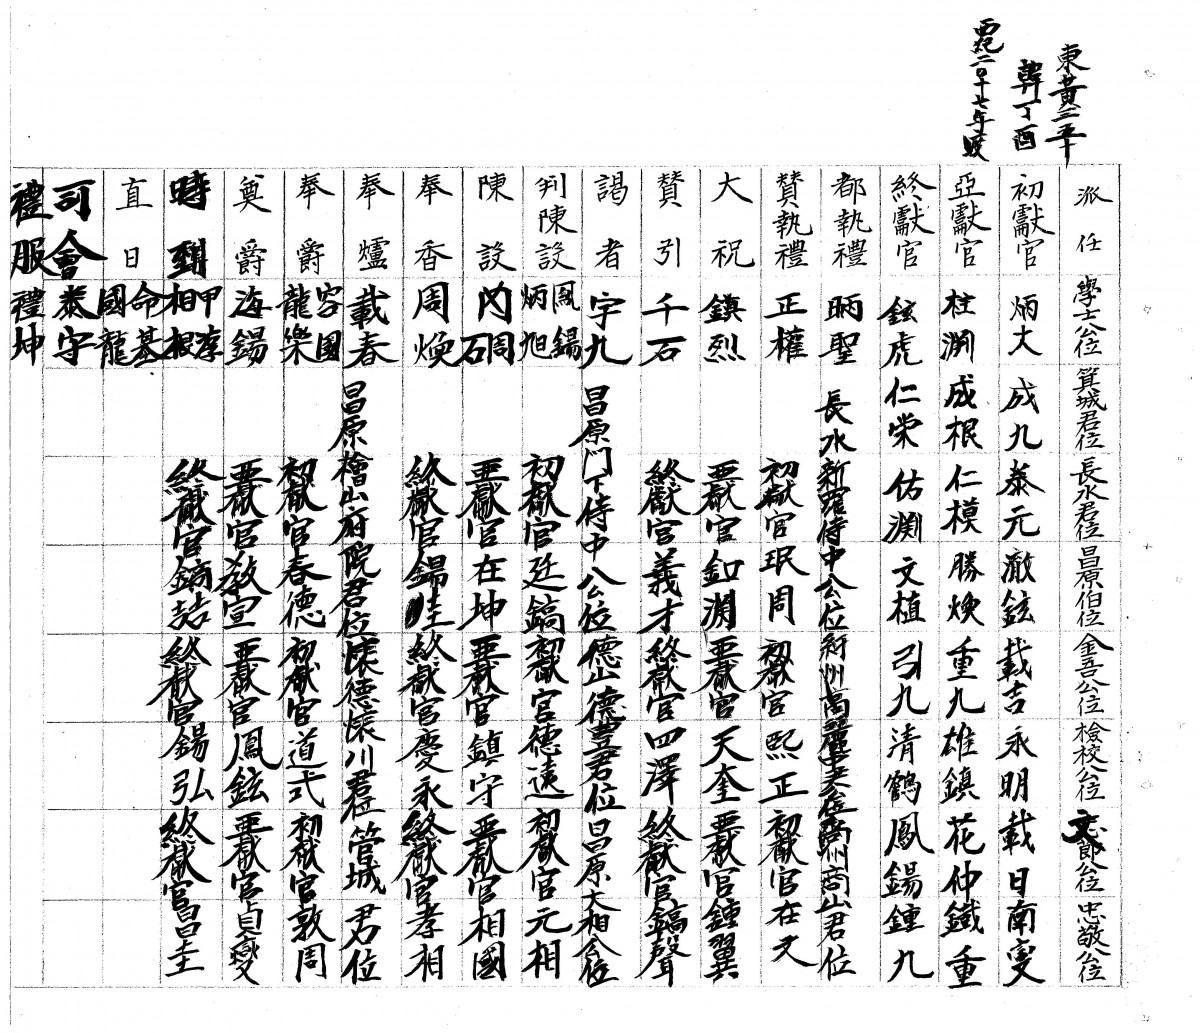 東黃三五十
韓丁酉
西紀二〇十七年度
派任 學士公位 箕城君位 長水君位 昌原伯位 金吾公位 檢校公位 文節公位 忠敬公位
初獻官 炳大 成九 泰元 澈鉉 載吉 永明 載日 南燮
亞獻官 柱淵 成根 仁模 勝煥 重九 雄鎮 花仲 鐵重
終獻官 鉉虎 仁榮 佑淵 文植 引九 清鶴 鳳錫 鍾九
都執禮 昞聖 長水新羅侍中公位 商山君位
贊執禮 正權 初獻官 珉周 初獻官 熙正 初獻官 在文
大祝 鎮烈 亞獻官 釦淵 亞獻官 天奎 亞獻官 鍾翼
贊引 千石 終獻官 義才 終獻官 四澤 終獻官 鎬聲
謁者 宇九 昌原門下侍中公位 德山德豊君位 昌原大相公位
判陳設 鳳錫 炳旭 初獻官 廷鎬 初獻官 德遠 初獻官 元相
陳設 丙周 石 亞獻官 在坤 亞獻官 鎮守 亞獻官 相國
奉香 周煥 終獻官 錫 終獻官 慶永 終獻官 孝相
奉爐 載春 昌原檜山府院君位 懷德懷川君位 管城君位
奉爵 容國 龍樂 初獻官 春德 初獻官 道式 初獻官 敦周
奠爵 海錫 亞獻官 敎宣 亞獻官 鳳鉉 亞獻官 貞燮
時到 甲淳 相根 終獻官 鎬喆 終獻官 錫弘 終獻官 昌圭
直日 命基 國龍
司會 泰守
禮服 禮坤